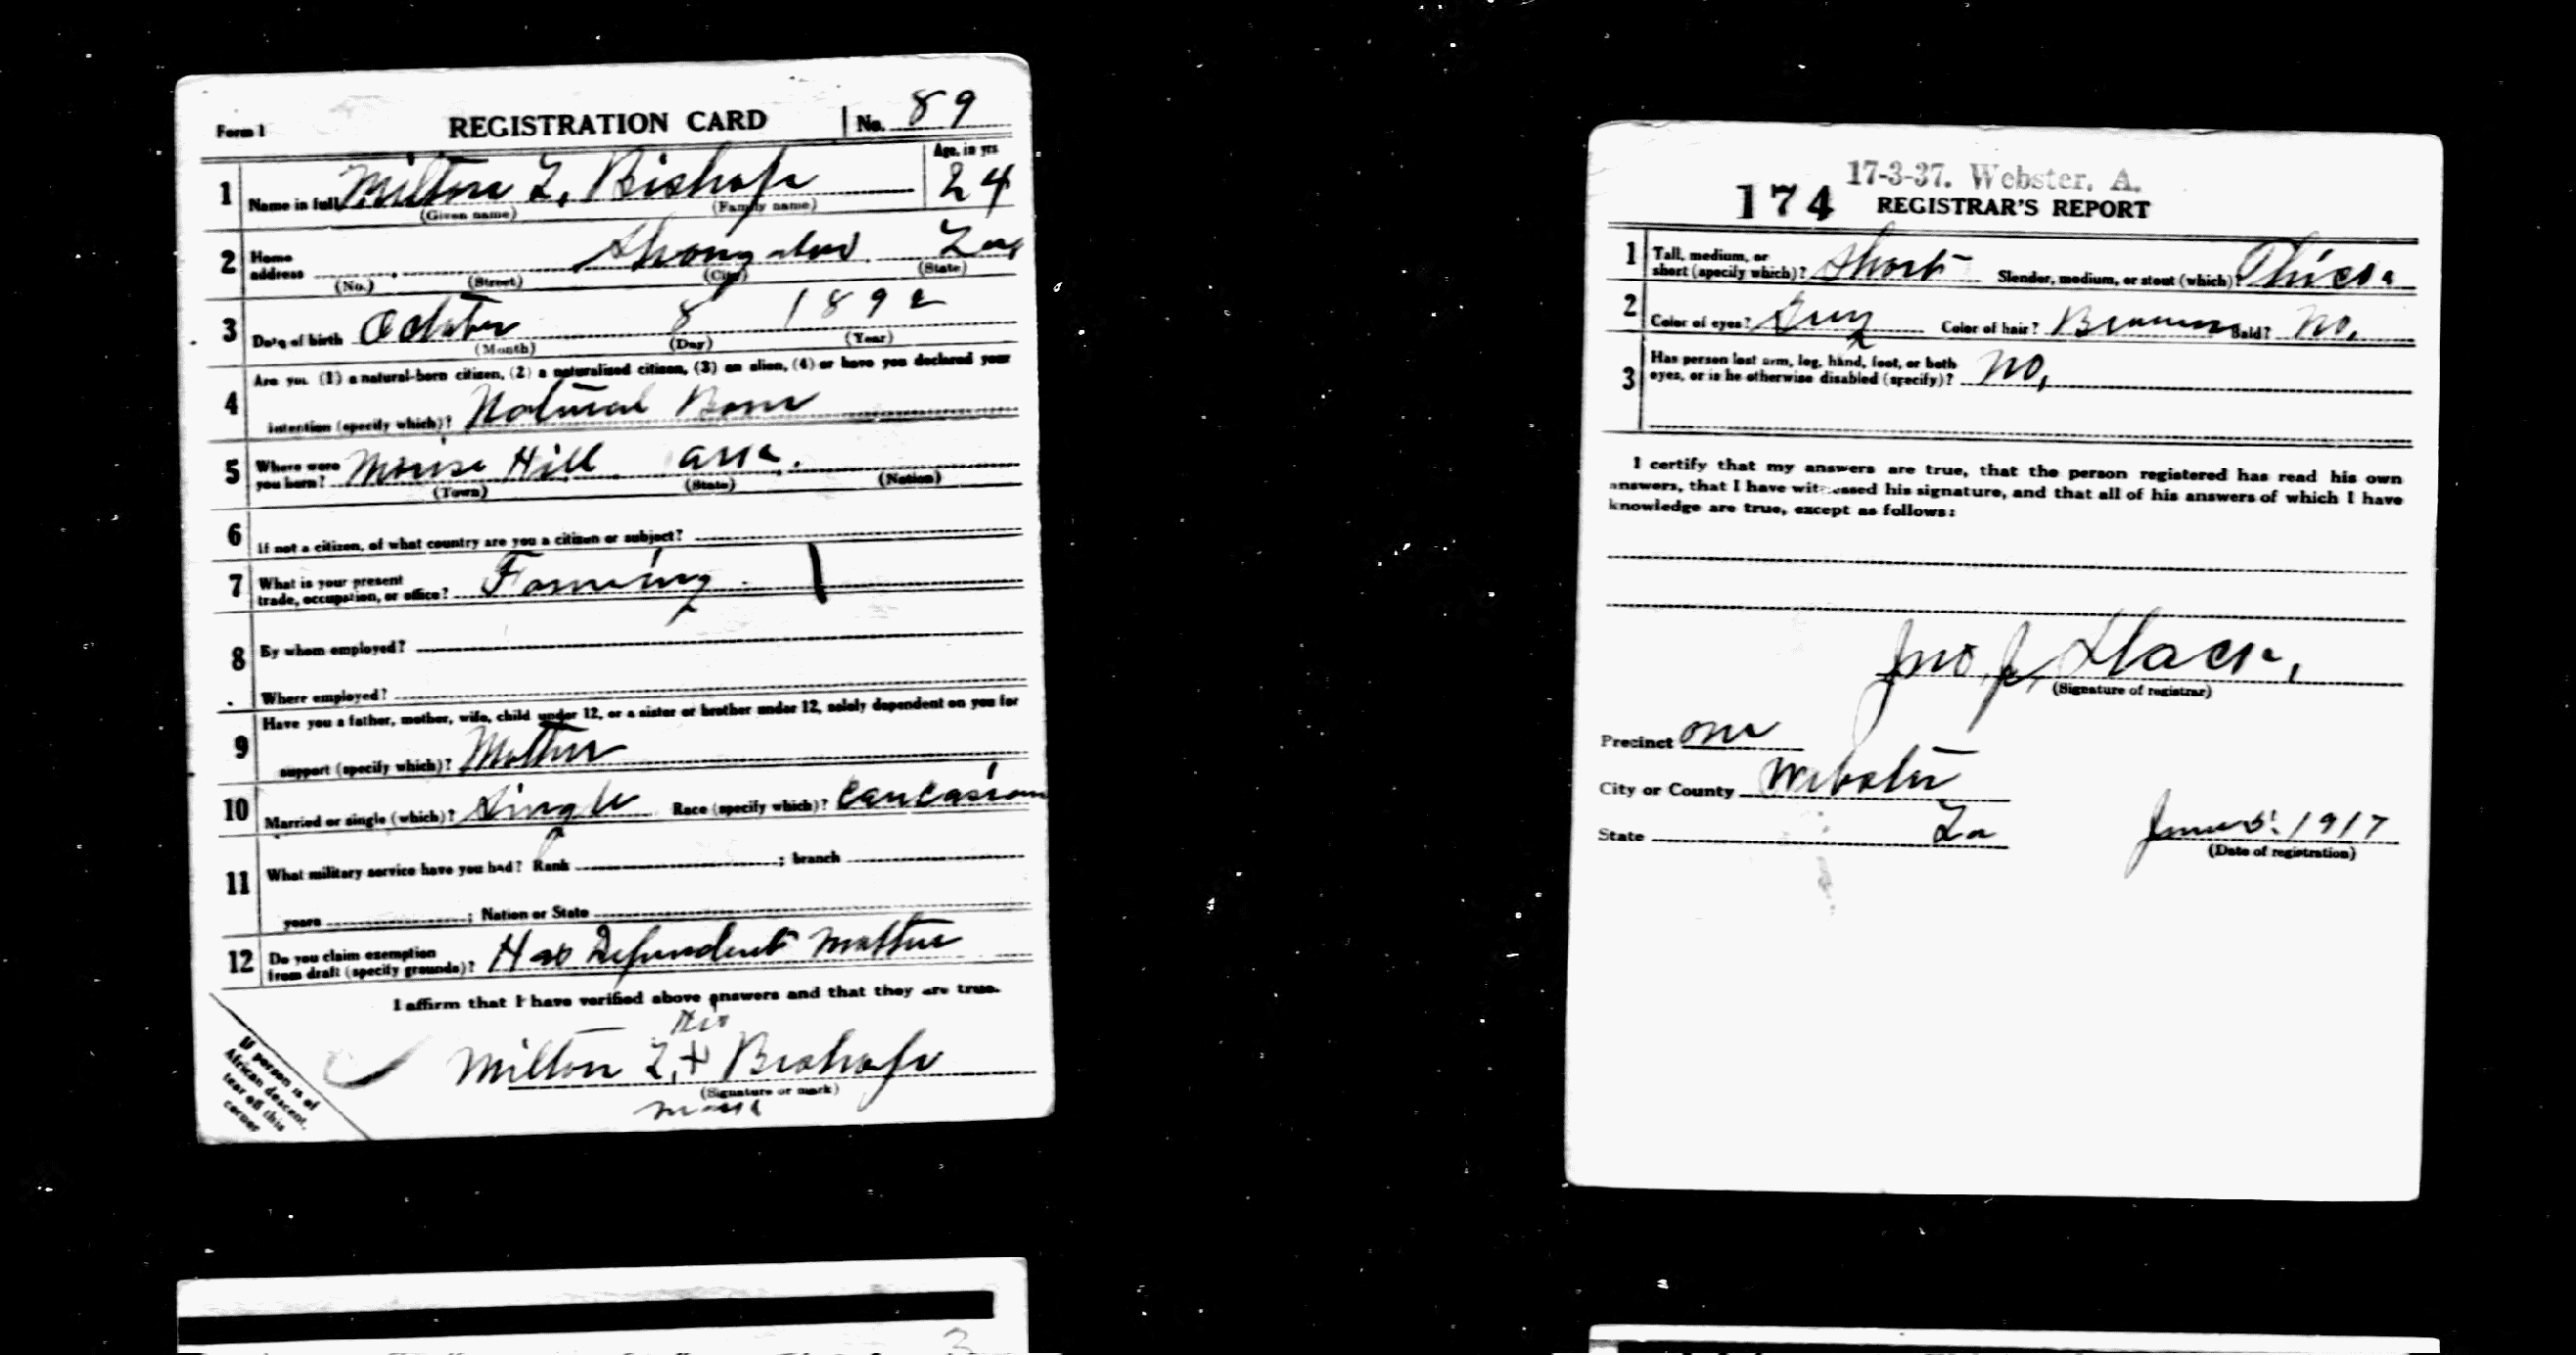 Form 1
REGISTRATION CARD
No. 89
1 Name in full Milton L. Bishop
(Given name) (Family name)
Age, in yrs
24
2 Home address Shongaloo La
(No.) (Street) (City) (State)
3 Date of birth October 8 1892
(Month) (Day) (Year)
4 Are you (1) a natural-born citizen, (2) a naturalized citizen, (3) an alien, (4) or have you declared your
intention (specify which)? Natural Born
5 Where were you born? Hill Ark.
(Town) (State) (Nation)
6 If not a citizen, of what country are you a citizen or subject?
7 What is your present trade, occupation, or office? Farming
8 By whom employed?
Where employed?
9 Have you a father, mother, wife, child under 12, or a sister or brother under 12, solely dependent on you for
support (specify which)? Mother
10 Married or single (which)? Single Race (specify which)? Caucasian
11 What military service have you had? Rank ; branch
years ; Nation or State
12 Do you claim exemption from draft (specify grounds)? Has Dependent Mother
I affirm that I have verified above answers and that they are true.
His
Milton L. + Bishop
(Signature or mark)
mark
If person is of
African descent,
tear off this
corner
17-3-37. Webster. A.
174 REGISTRAR'S REPORT
1 Tall, medium, or short (specify which)? Short Slender, medium, or stout (which)? Thick
2 Color of eyes? Grey Color of hair? Brown Bald? No.
3 Has person lost arm, leg, hand, foot, or both
eyes, or is he otherwise disabled (specify)? No.
I certify that my answers are true, that the person registered has read his own
answers, that I have witnessed his signature, and that all of his answers of which I have
knowledge are true, except as follows:
Jno. J. Slack.
(Signature of registrar)
Precinct one
City or County Webster
State La
June 5. 1917
(Date of registration)